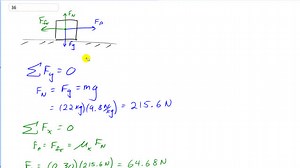 36
F_N
F_fr F_P
F_g
∑F_y = 0
F_N = F_g = mg
= (22kg)(9.8 m/s²) = 215.6 N
∑F_x = 0
F_P = F_fr = μ_k F_N
(0.30)(215.6 N) = 64.68 N